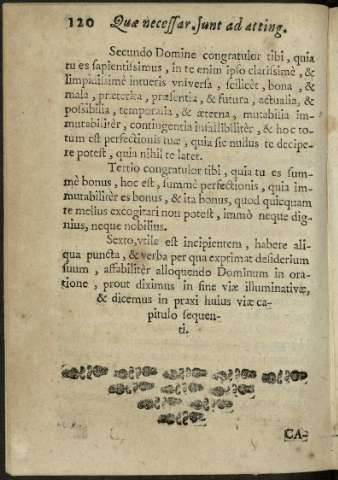 120 Quæ necessar. sunt ad atting.
Secundo Domine congratulor tibi, quia
tu es sapientissimus, in te enim ipso clarissimè, &
limpidissimè intueris vniversa, scilicèt, bona, &
mala, præterita, præsentia, & futura, actualia, &
possibilia, temporalia, & æterna, mutabilia im-
mutabilitèr, contingentia infallibilitèr, & hoc to-
tum est perfectionis tuæ, quia sic nullus te decipe-
re potest, quia nihil te latet.
Tertio congratulor tibi, quia tu es sum-
mè bonus, hoc est, summè perfectionis, quia im-
mutabilitèr es bonus, & ita bonus, quod quicquam
te melius excogitari non potest, immò neque dig-
nius, neque nobilius.
Sexto, vtile est incipientem, habere ali-
qua puncta, & verba per qua exprimat desiderium
suum, affabilitèr alloquendo Dominum in ora-
tione, prout diximus in fine viæ illuminativæ,
& dicemus in praxi huius viæ ca-
pitulo sequen-
ti.
CA-